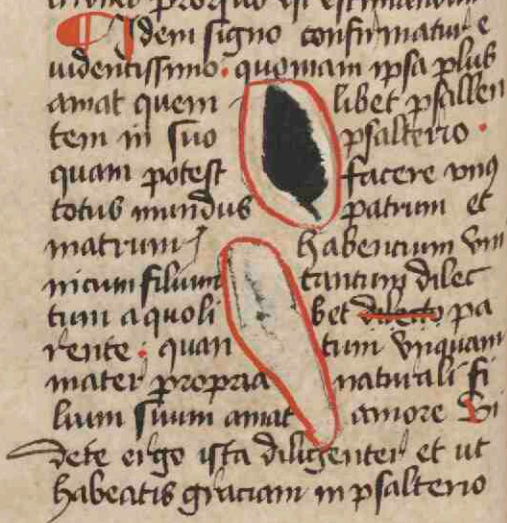 Idem signo confirmatur e
uidentissimo. quoniam ipsa plus
amat quem libet psallen
tem in suo psalterio.
quam potest facere vnus
totus mundus patrum et
matrum habentium vni
nicum filium tantum dilec
tum a quoli bet dilecto pa
rente. quan tum vnquam
mater propria naturali fi
lium suum amat amore Vi
dete ergo ista diligenter et ut
habeatis graciam in psalterio